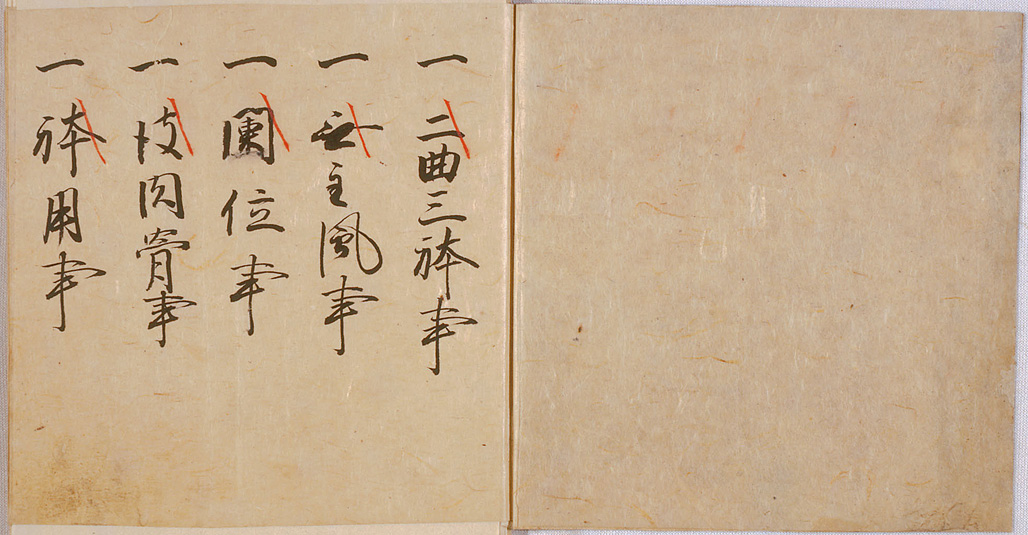 一 二曲三躰事
一 無主風事
一 闌位事
一 皮肉骨事
一 躰用事